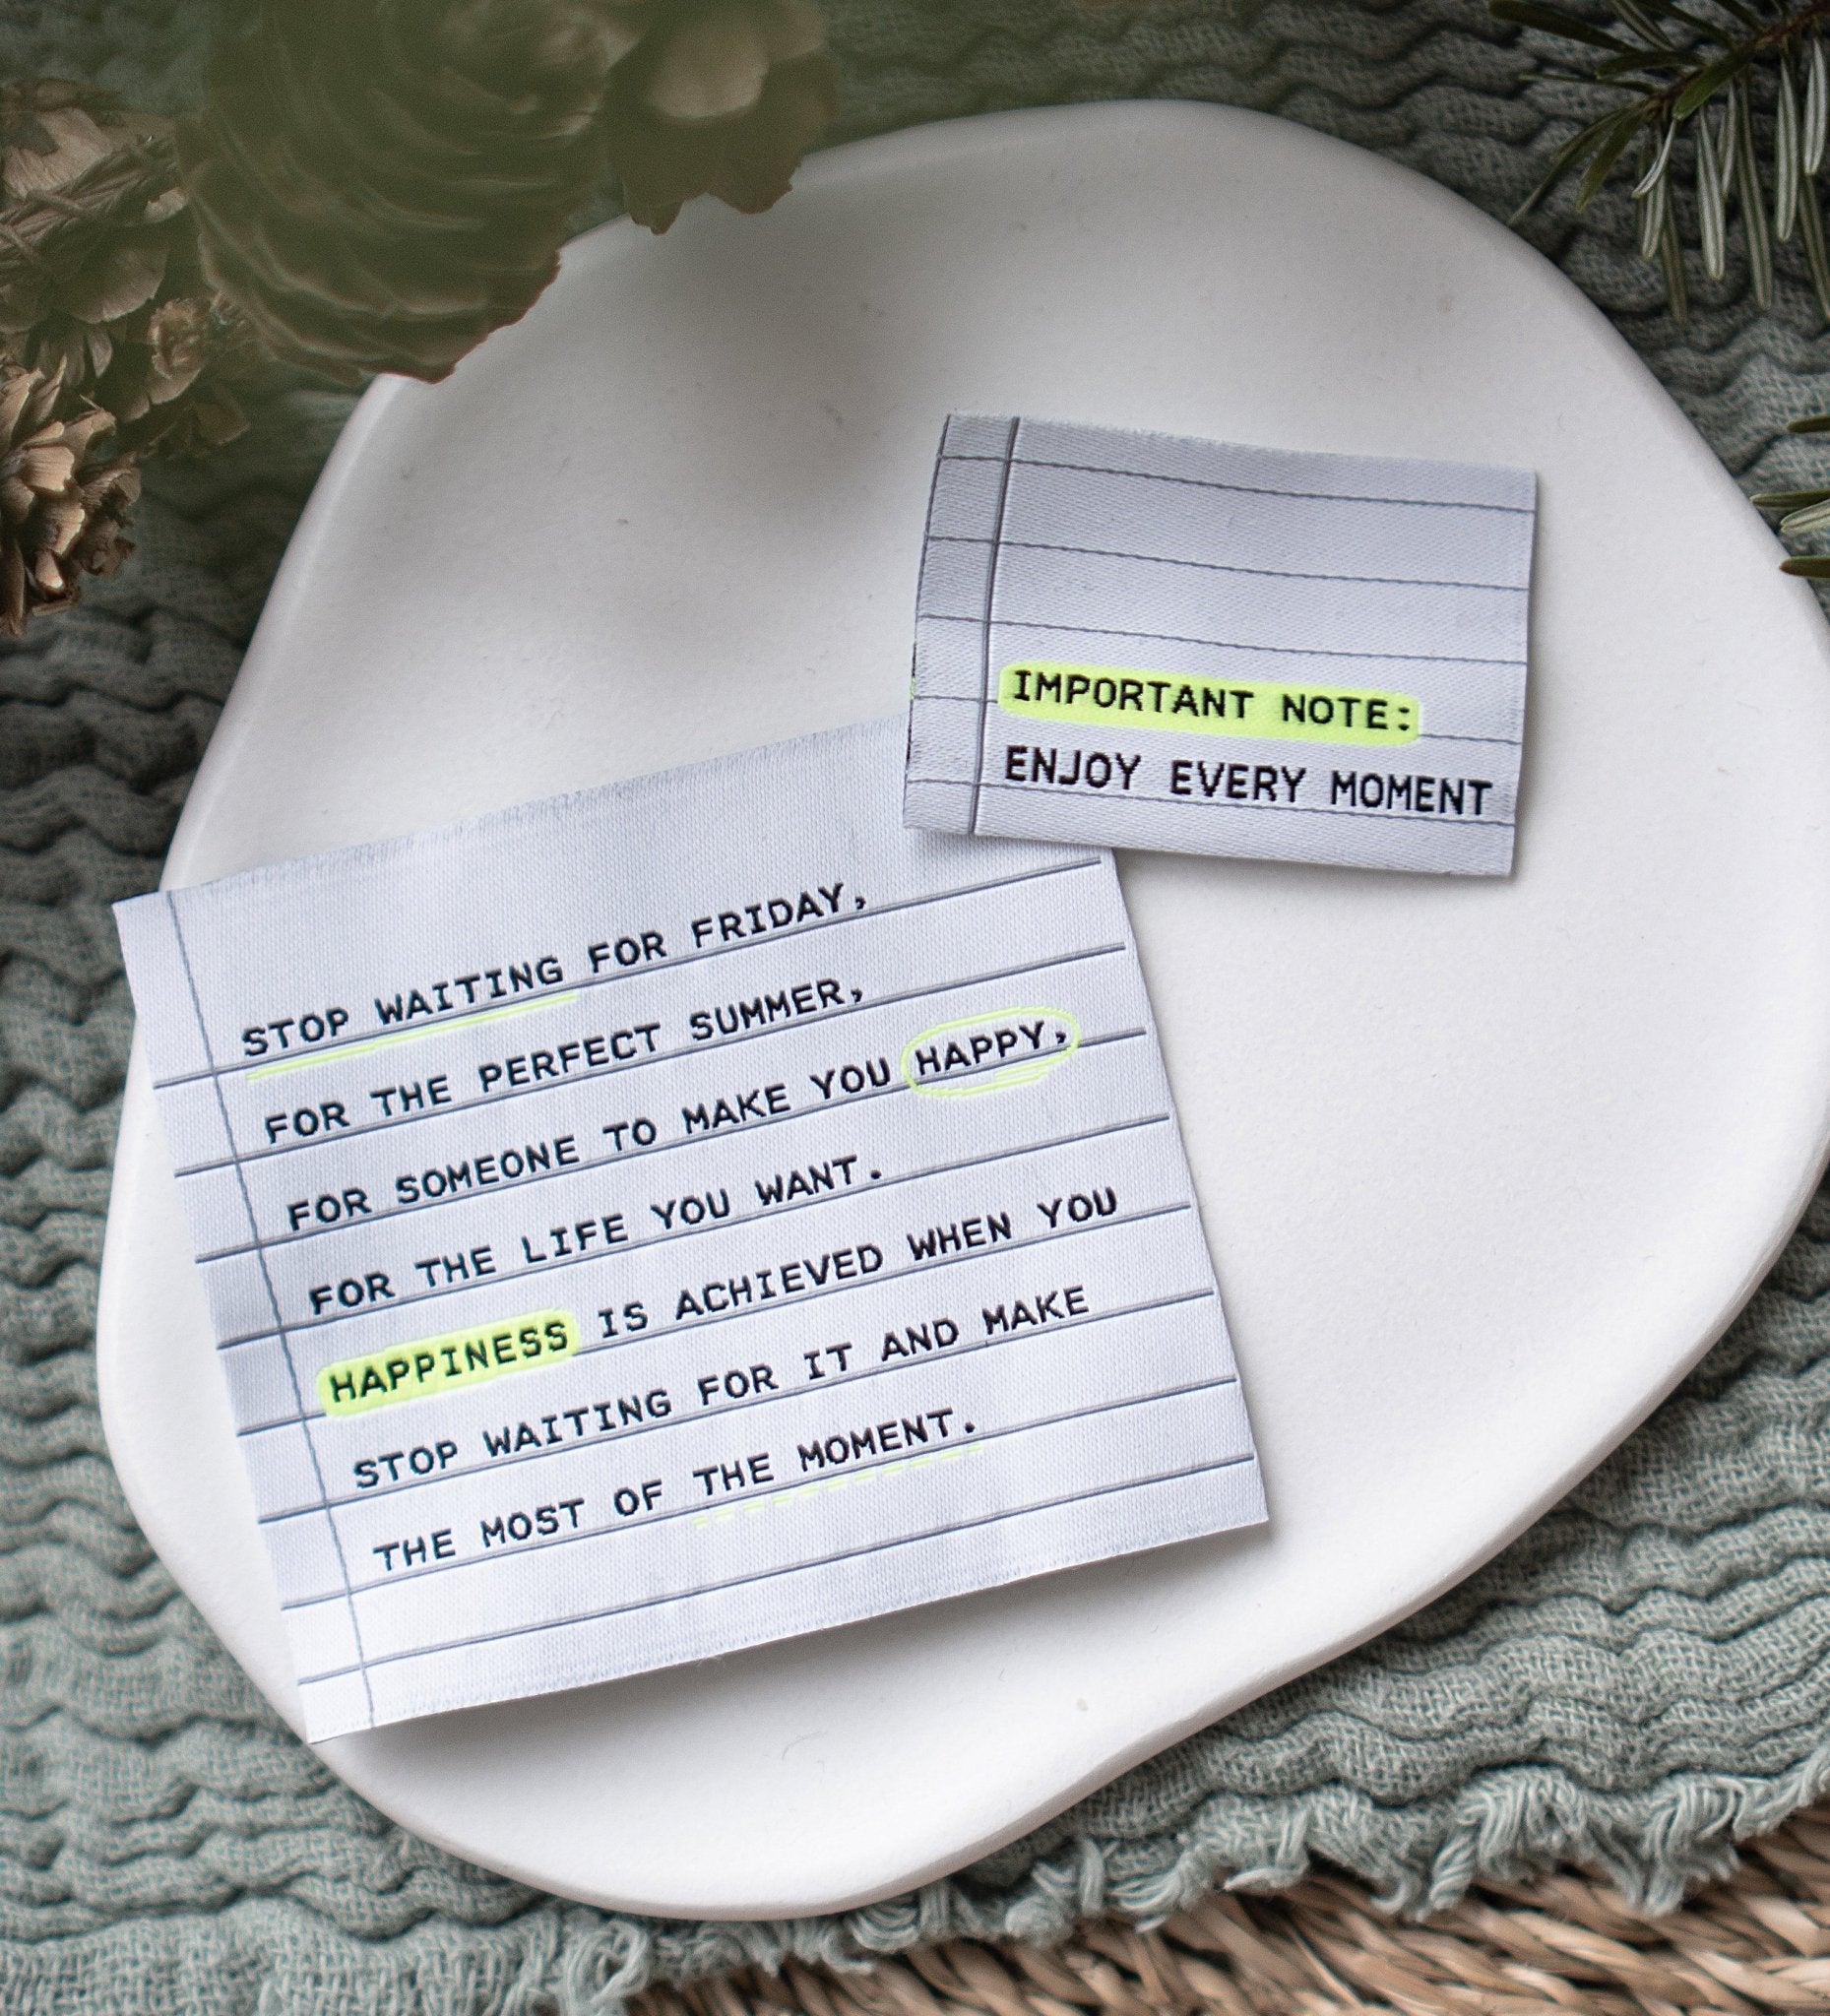 IMPORTANT NOTE:
ENJOY EVERY MOMENT
STOP WAITING FOR FRIDAY,
FOR THE PERFECT SUMMER,
FOR SOMEONE TO MAKE YOU HAPPY,
FOR THE LIFE YOU WANT.
HAPPINESS IS ACHIEVED WHEN YOU
STOP WAITING FOR IT AND MAKE
THE MOST OF THE MOMENT.